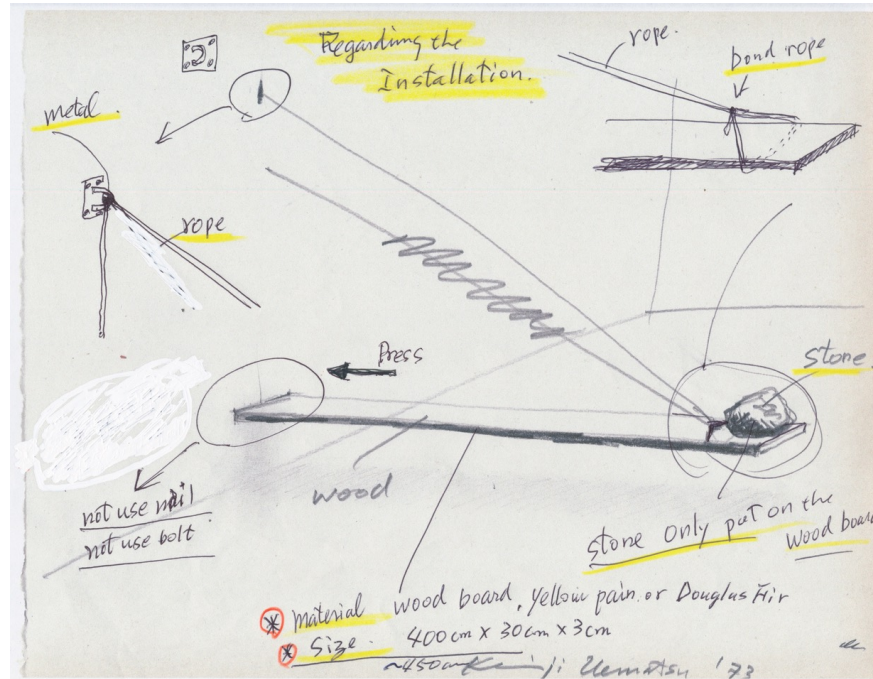 Regarding the
Installation.
rope.
bond rope
metal.
rope
Press
stone
wood
not use nail
not use bolt
stone only put on the
wood board
* material wood board, yellow pain or Douglas Fir
* Size. 400cm x 30cm x 3cm
~450cm
Keiji Uematsu '73